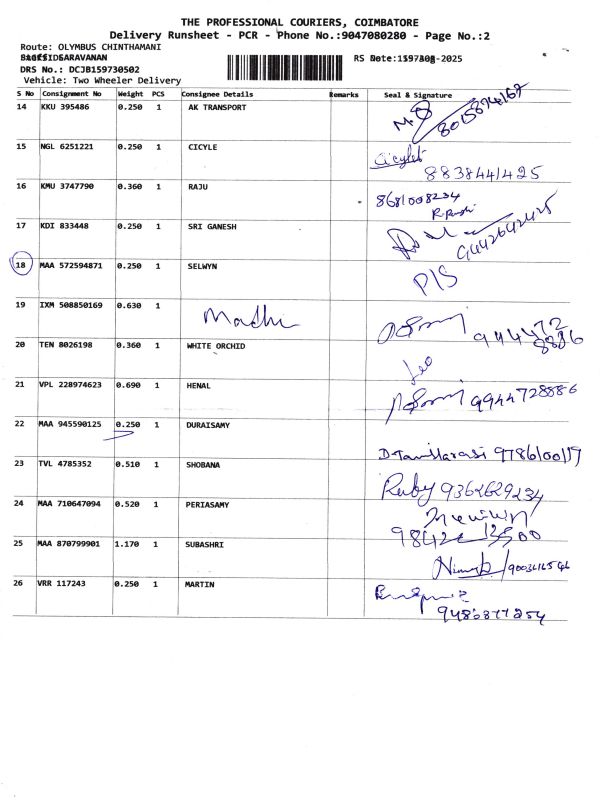 THE PROFESSIONAL COURIERS, COIMBATORE
Delivery Runsheet - PCR - Phone No.:9047080280 - Page No.:2
Route: OLYMBUS CHINTHAMANI
RS No
DRS No.: DCJB159730502
Vehicle: Two Wheeler Delivery
S No Consignment No Weight PCS Consignee Details Remarks Seal & Signature
14 KKU 395486 0.250 1 AK TRANSPORT
15 NGL 6251221 0.250 1 CICYLE Cicyle
8838441425
16 KMU 3747790 0.360 1 RAJU 8681008234
17 KDI 833448 0.250 1 SRI GANESH 9442642425
18 MAA 572594871 0.250 1 SELWYN P/S
19 IXM 508850169 0.630 1 Madhi
20 TEN 8026198 0.360 1 WHITE ORCHID Leo
21 VPL 228974623 0.690 1 HENAL 9944728886
22 MAA 945590125 0.250 1 DURAISAMY D-Tamilarasi 9786100119
23 TVL 4785352 0.510 1 SHOBANA Ruby 9362629234
24 MAA 710647094 0.520 1 PERIASAMY
25 MAA 870799901 1.170 1 SUBASHRI
26 VRR 117243 0.250 1 MARTIN